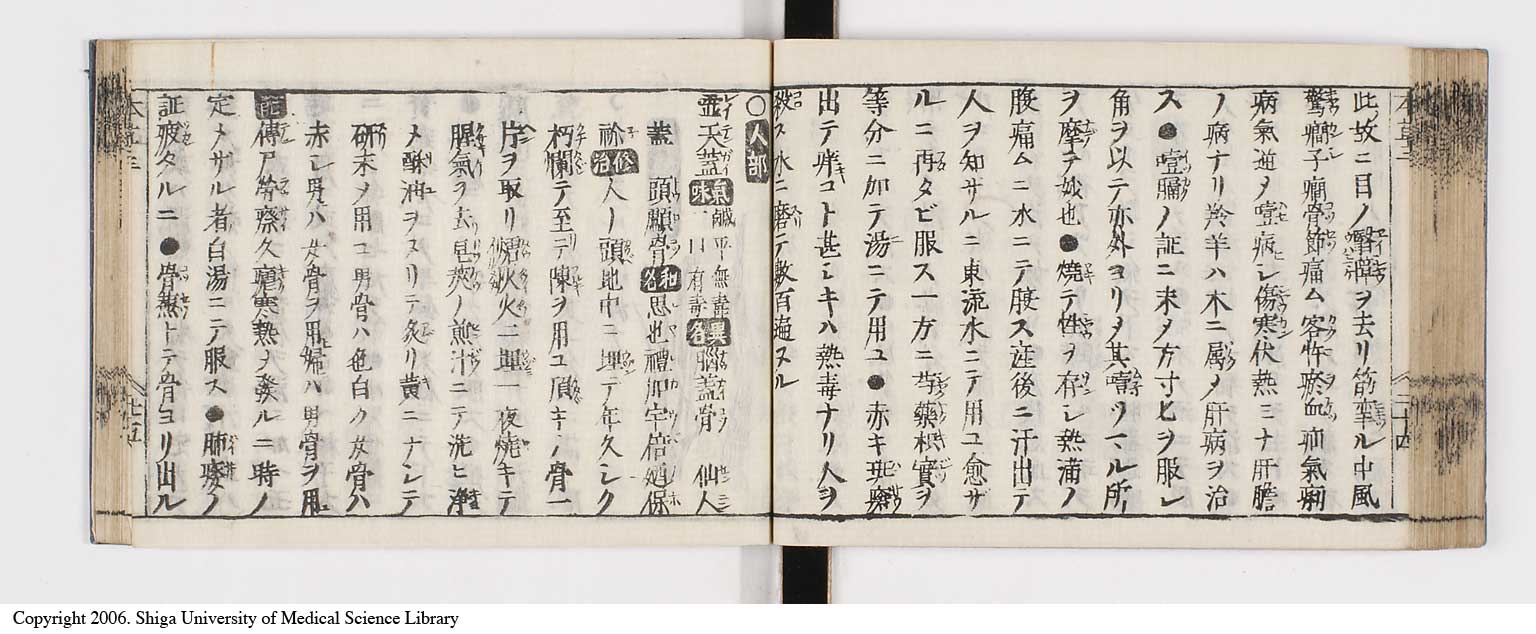 此故ニ目ノ瞖障ヲ去リ筋攣ル中風
驚癇子癇骨節痛ム客忤瘀血疝氣痢
病氣逆メ噎病シ傷寒伏熱ミナ肝膽
ノ病ナリ羚羊ハ木ニ属メ肝病ヲ治
ス●噎膈ノ証ニ末メ方寸匕ヲ服シ
角ヲ以テ亦外ヨリメ其噎ツマル所
ヲ摩テ妙也●燒テ性ヲ存シ熱滿ノ
腹痛ムニ水ニテ腹ス産後ニ汗出テ
人ヲ知ザルニ東流水ニテ用ユ愈ザ
ルニ再タビ服ス一方ニ芍藥枳實ヲ
等分ニ加テ湯ニテ用ユ●赤キ斑
出テ痒コト甚シキハ熱毒ナリ人ヲ
殺ス水ニ磨テ數百遍スル
○人部
霊天蓋 氣味 鹹平無毒一曰有毒 異名 腦蓋骨 仙人
蓋 頭顱骨 和名 思也禮加宇倍廼保
祢 修治 人ノ頭地中ニ埋テ年久シク
朽爛テ至テ陳ヲ用ユ頂キノ骨一
片ヲ取リ煻灰火ニ埋一夜燒キテ
腥氣ヲ去皂莢ノ煎汁ニテ洗ヒ浄
メ酥油ヲスリテ炙リ黄ニナシテ
研末メ用ユ男骨ハ色白ク女骨ハ
赤シ男ハ女骨ヲ用婦ハ男骨ヲ用
傳尸勞瘵久瘧寒熱ヲ發ルニ時ノ
定メザル者白湯ニテ服ス●肺痿ノ
証疲タルニ●骨蒸トテ骨ヨリ出ル
二十四
廿五
Copyright 2006. Shiga University of Medical Science Library